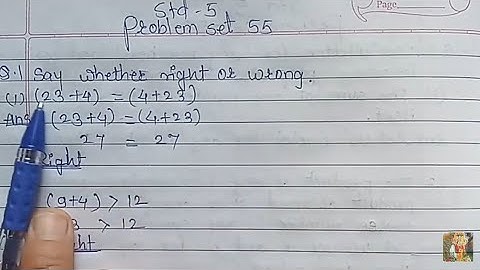 Page
Std - 5
Problem Set 55
Q.1 Say whether right or wrong.
(1) (23+4) = (4+23)
Ans (23+4) = (4+23)
27 = 27
Right
(9+4) > 12
3 > 12